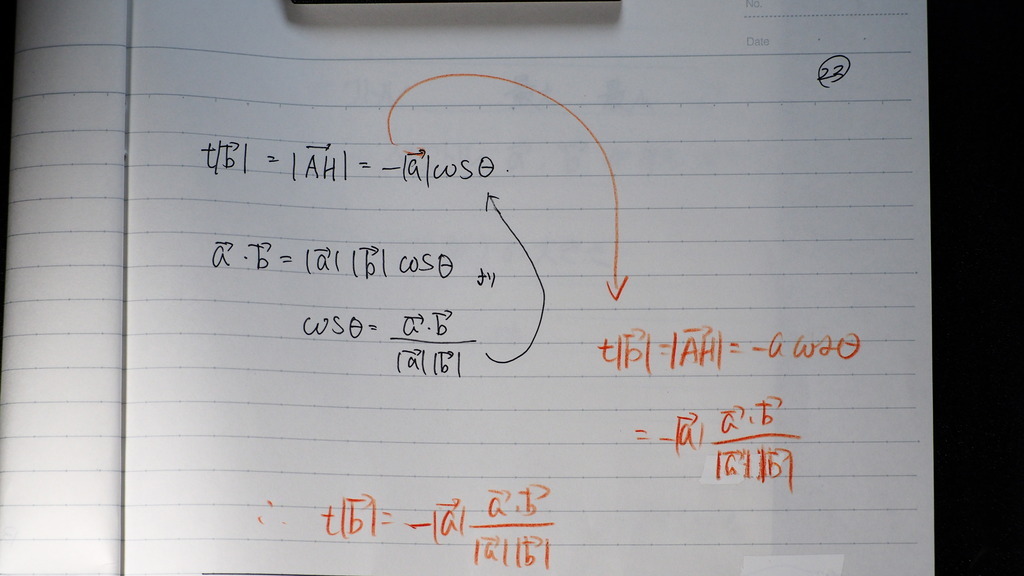 No.
Date
23
t|b⃗| = |AH⃗| = -|a⃗|cosθ.
a⃗・b⃗ = |a⃗||b⃗|cosθ より
cosθ = a⃗・b⃗ / |a⃗||b⃗|
t|b⃗| = |AH⃗| = -a cosθ
= -|a⃗| a⃗・b⃗ / |a⃗||b⃗|
∴ t|b⃗| = -|a⃗| a⃗・b⃗ / |a⃗||b⃗|